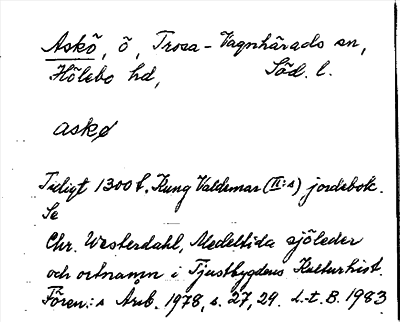 Askö, ö, Trosa-Vagnhärads sn,
Hölebo hd, Söd. l.
askø
Tidigt 1300 t. Kung Valdemar (II:s) jordebok.
Se
Chr. Westerdahl, Medeltida sjöleder
och ortnamn i Tjustbygdens Kulturhist.
Fören:s Årsb. 1978, s. 27, 29. L-t. B. 1983